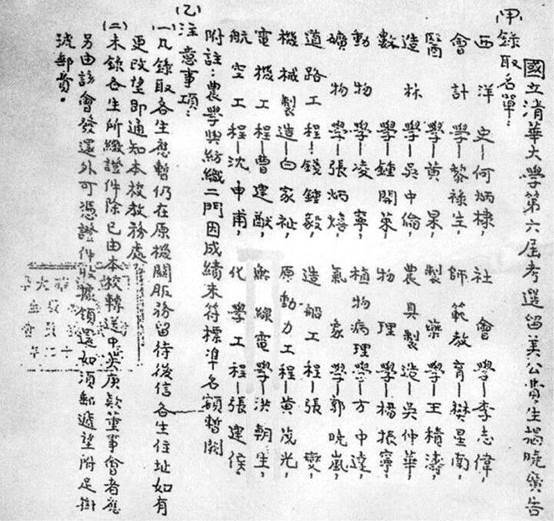 國立清華大學第六屆考選留美公費生揭曉廣告
(甲)錄取名單:
西洋史—何炳棣, 社會學—李志偉,
會計學—黎祿生, 師範教育—樊星南,
醫學—黃杲, 製藥學—王積濤,
造林學—吳中倫, 農具製造—吳仲華,
數學—鍾開萊, 物理學—楊振寧,
動物學—凌寧, 植物病理學—方中達,
礦物學—張炳熺, 氣象學—郭曉嵐,
道路工程—錢鍾毅, 造船工程—張燮,
機械製造—白家祉, 原動力工程—黃茂光,
電機工程—曹建猷, 無線電學—洪朝生,
航空工程—沈申甫, 化學工程—張建侯,
附註:農學與紡織二門因成績未符標準名額暫闕
(乙)注意事項:
(一)凡錄取各生應暫仍在原機關服務留待後信各生住址如有
更改望即通知本校教務處
(二)未錄各生所繳證件除已由本校轉送中英庚款董事會者應
另由該會發還外可憑證件收據領還如須郵遞望附足掛
號郵費。